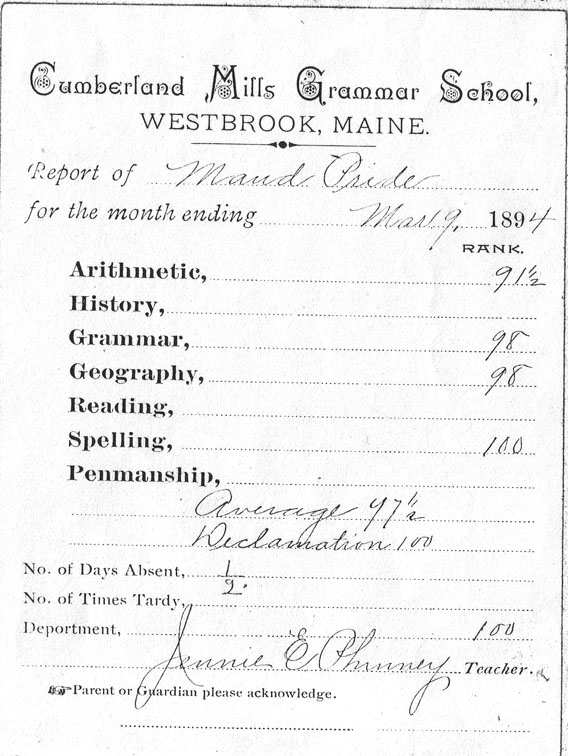 Cumberland Mills Grammar School,
WESTBROOK, MAINE.
Report of Maud Pride
for the month ending Mar 9, 1894
RANK.
Arithmetic, 91½
History,
Grammar, 98
Geography, 98
Reading,
Spelling, 100
Penmanship,
Average 97½
Declamation 100
No. of Days Absent, ½.
No. of Times Tardy,
Deportment, 100
Jennie E Phinney Teacher.
☞Parent or Guardian please acknowledge.